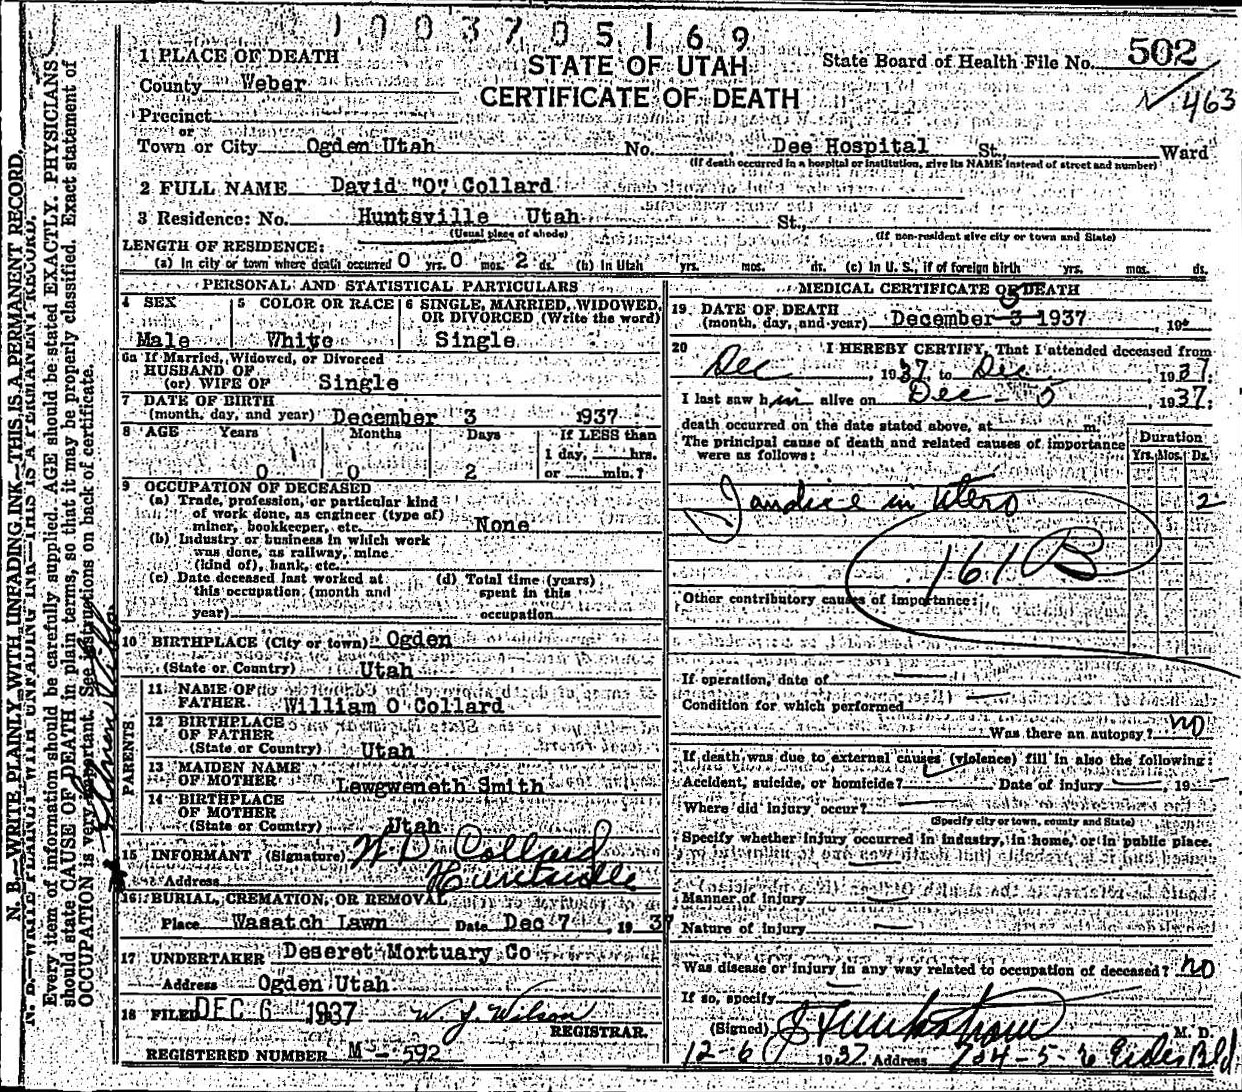 1003705169
1 PLACE OF DEATH
STATE OF UTAH
CERTIFICATE OF DEATH
State Board of Health File No. 502
463
County Weber
Precinct
or
Town or City Ogden Utah No. Dee Hospital St., Ward
(If death occurred in a hospital or institution, give its NAME instead of street and number)
2 FULL NAME David "O" Collard
3 Residence: No. Huntsville Utah St.,
(Usual place of abode) (If non-resident give city or town and State)
LENGTH OF RESIDENCE:
(a) In city or town where death occurred 0 yrs. 0 mos. 2 ds. (b) In Utah yrs. mos. ds. (c) In U. S., if of foreign birth yrs. mos. ds.
PERSONAL AND STATISTICAL PARTICULARS
4 SEX
Male
5 COLOR OR RACE
White
6 SINGLE, MARRIED, WIDOWED,
OR DIVORCED (Write the word)
Single
6a If Married, Widowed, or Divorced
HUSBAND OF
(or) WIFE OF Single
7 DATE OF BIRTH
(month, day, and year) December 3 1937
8 AGE Years Months Days If LESS than
1 day, hrs.
0 0 2 or min.?
9 OCCUPATION OF DECEASED
(a) Trade, profession, or particular kind
of work done, as engineer (type of)
miner, bookkeeper, etc. None
(b) Industry or business in which work
was done, as railway, mine
(kind of), bank, etc.
(c) Date deceased last worked at (d) Total time (years)
this occupation (month and spent in this
year) occupation
10 BIRTHPLACE (City or town) Ogden
(State or Country) Utah
PARENTS
11 NAME OF
FATHER William O Collard
12 BIRTHPLACE
OF FATHER
(State or Country) Utah
13 MAIDEN NAME
OF MOTHER Lewgweneth Smith
14 BIRTHPLACE
OF MOTHER
(State or Country) Utah
15 INFORMANT (Signature) W D Collard
Address Huntsville
16 BURIAL, CREMATION, OR REMOVAL
Place Wasatch Lawn Date Dec 7, 1937
17 UNDERTAKER Deseret Mortuary Co
Address Ogden Utah
18 FILED DEC 6 1937 W. J. Wilson
REGISTRAR.
REGISTERED NUMBER M - 592
MEDICAL CERTIFICATE OF DEATH
5
19 DATE OF DEATH
(month, day, and year) December 3 1937, 19
20 I HEREBY CERTIFY, That I attended deceased from
Dec, 1937, to Dec, 1937.
I last saw him alive on Dec - 5, 1937;
death occurred on the date stated above, at m.
The principal cause of death and related causes of importance
were as follows:
Duration
Yrs. Mos. Ds.
Jandice in utero 2
161 B
Other contributory causes of importance:
If operation, date of
Condition for which performed
Was there an autopsy? no
If death was due to external causes (violence) fill in also the following:
Accident, suicide, or homicide? Date of injury, 19
Where did injury occur?
(Specify city or town, county and State)
Specify whether injury occurred in industry, in home, or in public place.
Manner of injury
Nature of injury
Was disease or injury in any way related to occupation of deceased? no
If so, specify
(Signed) M. D.
12-6 1937 Address Bld.
N. B.—WRITE PLAINLY WITH UNFADING INK—THIS IS A PERMANENT RECORD.
Every item of information should be carefully supplied. AGE should be stated EXACTLY. PHYSICIANS
should state CAUSE OF DEATH in plain terms, so that it may be properly classified. Exact statement of
OCCUPATION is very important. See instructions on back of certificate.